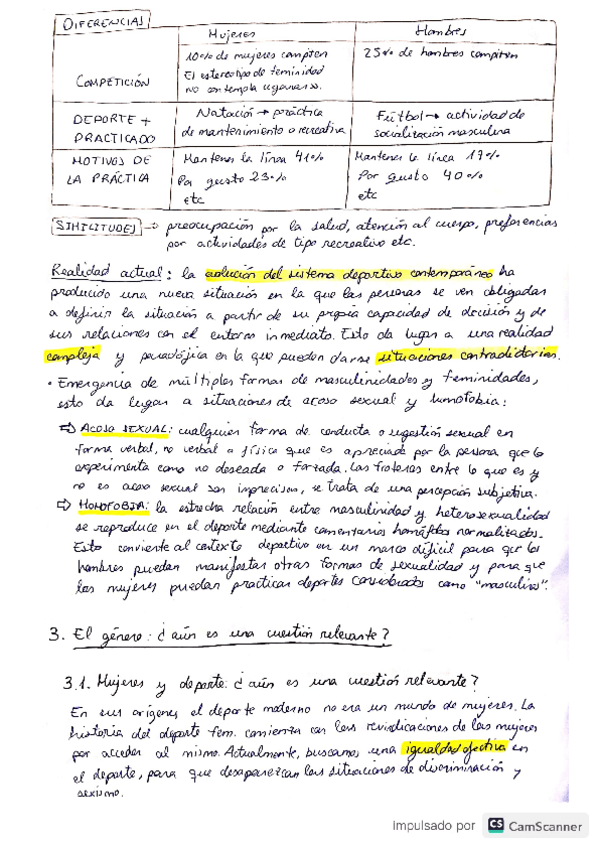 DIFERENCIAS
Mujeres
Hombres
COMPETICIÓN
10% de mujeres compiten
El estereotipo de feminidad
no contempla
25% de hombres compiten
DEPORTE +
PRACTICADO
Natación → práctica
de mantenimiento o recreativa
Fútbol → actividad de
socialización masculina
MOTIVOS DE
LA PRÁCTICA
Mantener la línea 41%
Por gusto 23%
etc
Mantener la línea 17%
Por gusto 40%
etc
SIMILITUDES → preocupación por la salud, atención al cuerpo, preferencias
por actividades de tipo recreativo etc.
Realidad actual: la evolución del sistema deportivo contemporáneo ha
producido una nueva situación en la que las personas se ven obligadas
a definir la situación a partir de su propia capacidad de decisión y de
sus relaciones con el entorno inmediato. Esto da lugar a una realidad
compleja y paradójica en la que pueden darse situaciones contradictorias.
• Emergencia de múltiples formas de masculinidades y feminidades,
esto da lugar a situaciones de acoso sexual y homofobia:
⇨ ACOSO SEXUAL: cualquier forma de conducta o sugestión sexual en
forma verbal, no verbal o física que es apreciada por la persona que lo
experimenta como no deseada o forzada. Las fronteras entre lo que es y
no es acoso sexual son imprecisas, se trata de una percepción subjetiva.
⇨ HOMOFOBIA: la estrecha relación entre masculinidad y heterosexualidad
se reproduce en el deporte mediante comentarios homófobos normalizados.
Esto convierte al contexto deportivo en un marco difícil para que los
hombres puedan manifestar otras formas de sexualidad y para que
las mujeres puedan practicar deportes considerados como "masculinos".
3. El género: ¿aún es una cuestión relevante?
3.1. Mujeres y deporte: ¿aún es una cuestión relevante?
En sus orígenes el deporte moderno no era un mundo de mujeres. La
historia del deporte fem. comienza con las reivindicaciones de las mujeres
por acceder al mismo. Actualmente, buscamos una igualdad efectiva en
el deporte, para que desaparezcan las situaciones de discriminación y
sexismo.
Impulsado por CS CamScanner